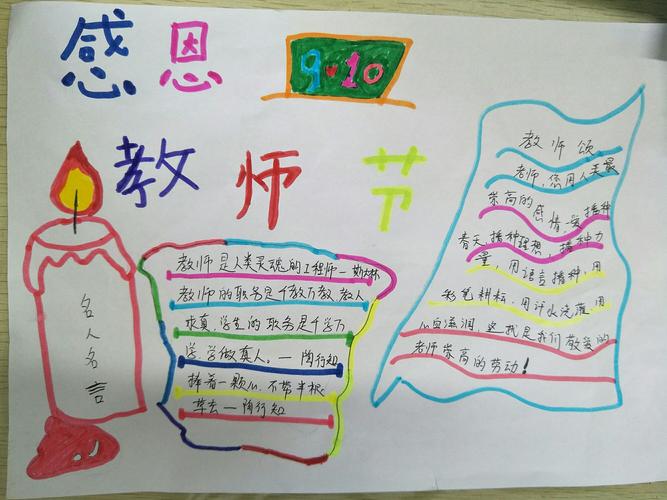 感恩
9·10
教师节
名人名言
教师是人类灵魂的工程师—斯大林
教师的职务是千教万教,教人
求真,学生的职务是千学万
学,学做真人。—陶行知
捧着一颗心,不带半根
草去—陶行知
教师颂
老师,您用人类最
崇高的感情-爱,播种
春天,播种理想,播种力
量,用语言播种,用
彩笔耕耘,用汗水浇灌,用
心血滋润,这就是我们敬爱的
老师崇高的劳动!